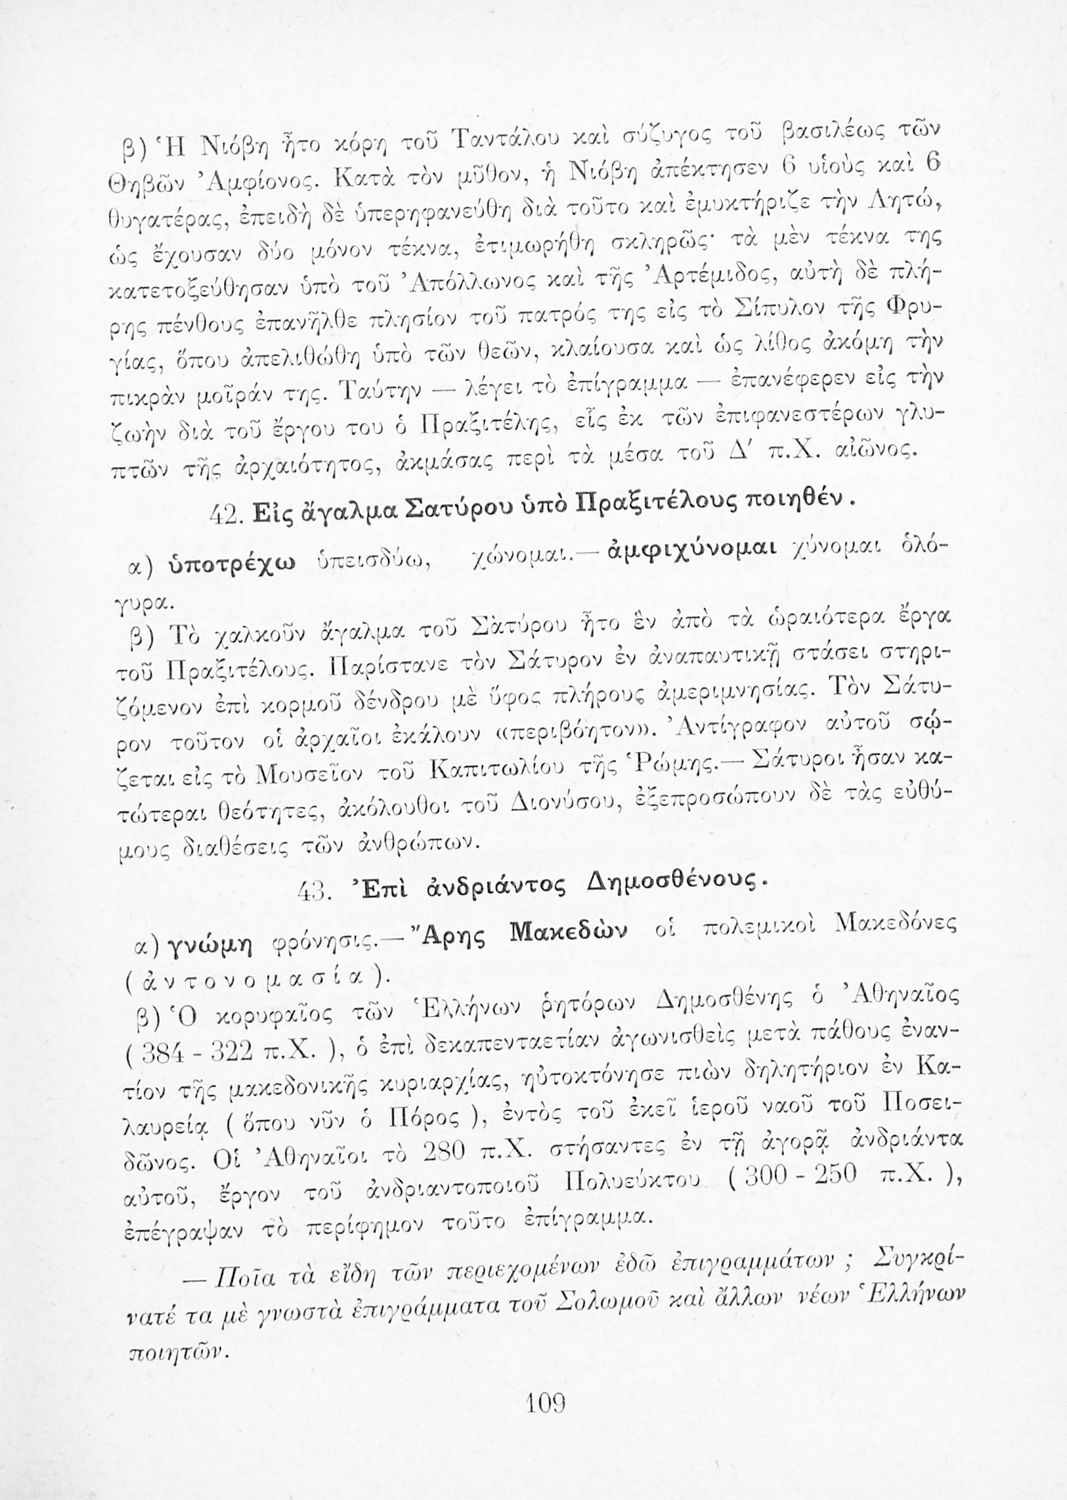 β) Ἡ Νιόβη ἦτο κόρη τοῦ Ταντάλου καὶ σύζυγος τοῦ βασιλέως τῶν
Θηβῶν Ἀμφίονος. Κατὰ τὸν μῦθον, ἡ Νιόβη ἀπέκτησεν 6 υἱοὺς καὶ 6
θυγατέρας, ἐπειδὴ δὲ ὑπερηφανεύθη διὰ τοῦτο καὶ ἐμυκτήριζε τὴν Λητώ,
ὡς ἔχουσαν δύο μόνον τέκνα, ἐτιμωρήθη σκληρῶς· τὰ μὲν τέκνα της
κατετοξεύθησαν ὑπὸ τοῦ Ἀπόλλωνος καὶ τῆς Ἀρτέμιδος, αὐτὴ δὲ πλή-
ρης πένθους ἐπανῆλθε πλησίον τοῦ πατρός της εἰς τὸ Σίπυλον τῆς Φρυ-
γίας, ὅπου ἀπελιθώθη ὑπὸ τῶν θεῶν, κλαίουσα καὶ ὡς λίθος ἀκόμη τὴν
πικρὰν μοῖράν της. Ταύτην — λέγει τὸ ἐπίγραμμα — ἐπανέφερεν εἰς τὴν
ζωὴν διὰ τοῦ ἔργου του ὁ Πραξιτέλης, εἷς ἐκ τῶν ἐπιφανεστέρων γλυ-
πτῶν τῆς ἀρχαιότητος, ἀκμάσας περὶ τὰ μέσα τοῦ Δ΄ π.Χ. αἰῶνος.
42. Εἰς ἄγαλμα Σατύρου ὑπὸ Πραξιτέλους ποιηθέν.
α) ὑποτρέχω ὑπεισδύω, χώνομαι.— ἀμφιχύνομαι χύνομαι ὁλό-
γυρα.
β) Τὸ χαλκοῦν ἄγαλμα τοῦ Σὰτύρου ἦτο ἓν ἀπὸ τὰ ὡραιότερα ἔργα
τοῦ Πραξιτέλους. Παρίστανε τὸν Σάτυρον ἐν ἀναπαυτικῇ στάσει στηρι-
ζόμενον ἐπὶ κορμοῦ δένδρου μὲ ὕφος πλήρους ἀμεριμνησίας. Τὸν Σάτυ-
ρον τοῦτον οἱ ἀρχαῖοι ἐκάλουν «περιβόητον». Ἀντίγραφον αὐτοῦ σῴ-
ζεται εἰς τὸ Μουσεῖον τοῦ Καπιτωλίου τῆς Ῥώμης.— Σάτυροι ἦσαν κα-
τώτεραι θεότητες, ἀκόλουθοι τοῦ Διονύσου, ἐξεπροσώπουν δὲ τὰς εὐθύ-
μους διαθέσεις τῶν ἀνθρώπων.
43. Ἐπὶ ἀνδριάντος Δημοσθένους.
α) γνώμη φρόνησις.— Ἄρης Μακεδὼν οἱ πολεμικοὶ Μακεδόνες
(ἀντονομασία).
β) Ὁ κορυφαῖος τῶν Ἑλλήνων ῥητόρων Δημοσθένης ὁ Ἀθηναῖος
(384 - 322 π.Χ.), ὁ ἐπὶ δεκαπενταετίαν ἀγωνισθεὶς μετὰ πάθους ἐναν-
τίον τῆς μακεδονικῆς κυριαρχίας, ηὐτοκτόνησε πιὼν δηλητήριον ἐν Κα-
λαυρείᾳ (ὅπου νῦν ὁ Πόρος), ἐντὸς τοῦ ἐκεῖ ἱεροῦ ναοῦ τοῦ Ποσει-
δῶνος. Οἱ Ἀθηναῖοι τὸ 280 π.Χ. στήσαντες ἐν τῇ ἀγορᾷ ἀνδριάντα
αὐτοῦ, ἔργον τοῦ ἀνδριαντοποιοῦ Πολυεύκτου (300 - 250 π.Χ.),
ἐπέγραψαν τὸ περίφημον τοῦτο ἐπίγραμμα.
— Ποῖα τὰ εἴδη τῶν περιεχομένων ἐδῶ ἐπιγραμμάτων; Συγκρί-
νατέ τα μὲ γνωστὰ ἐπιγράμματα τοῦ Σολωμοῦ καὶ ἄλλων νέων Ἑλλήνων
ποιητῶν.
109